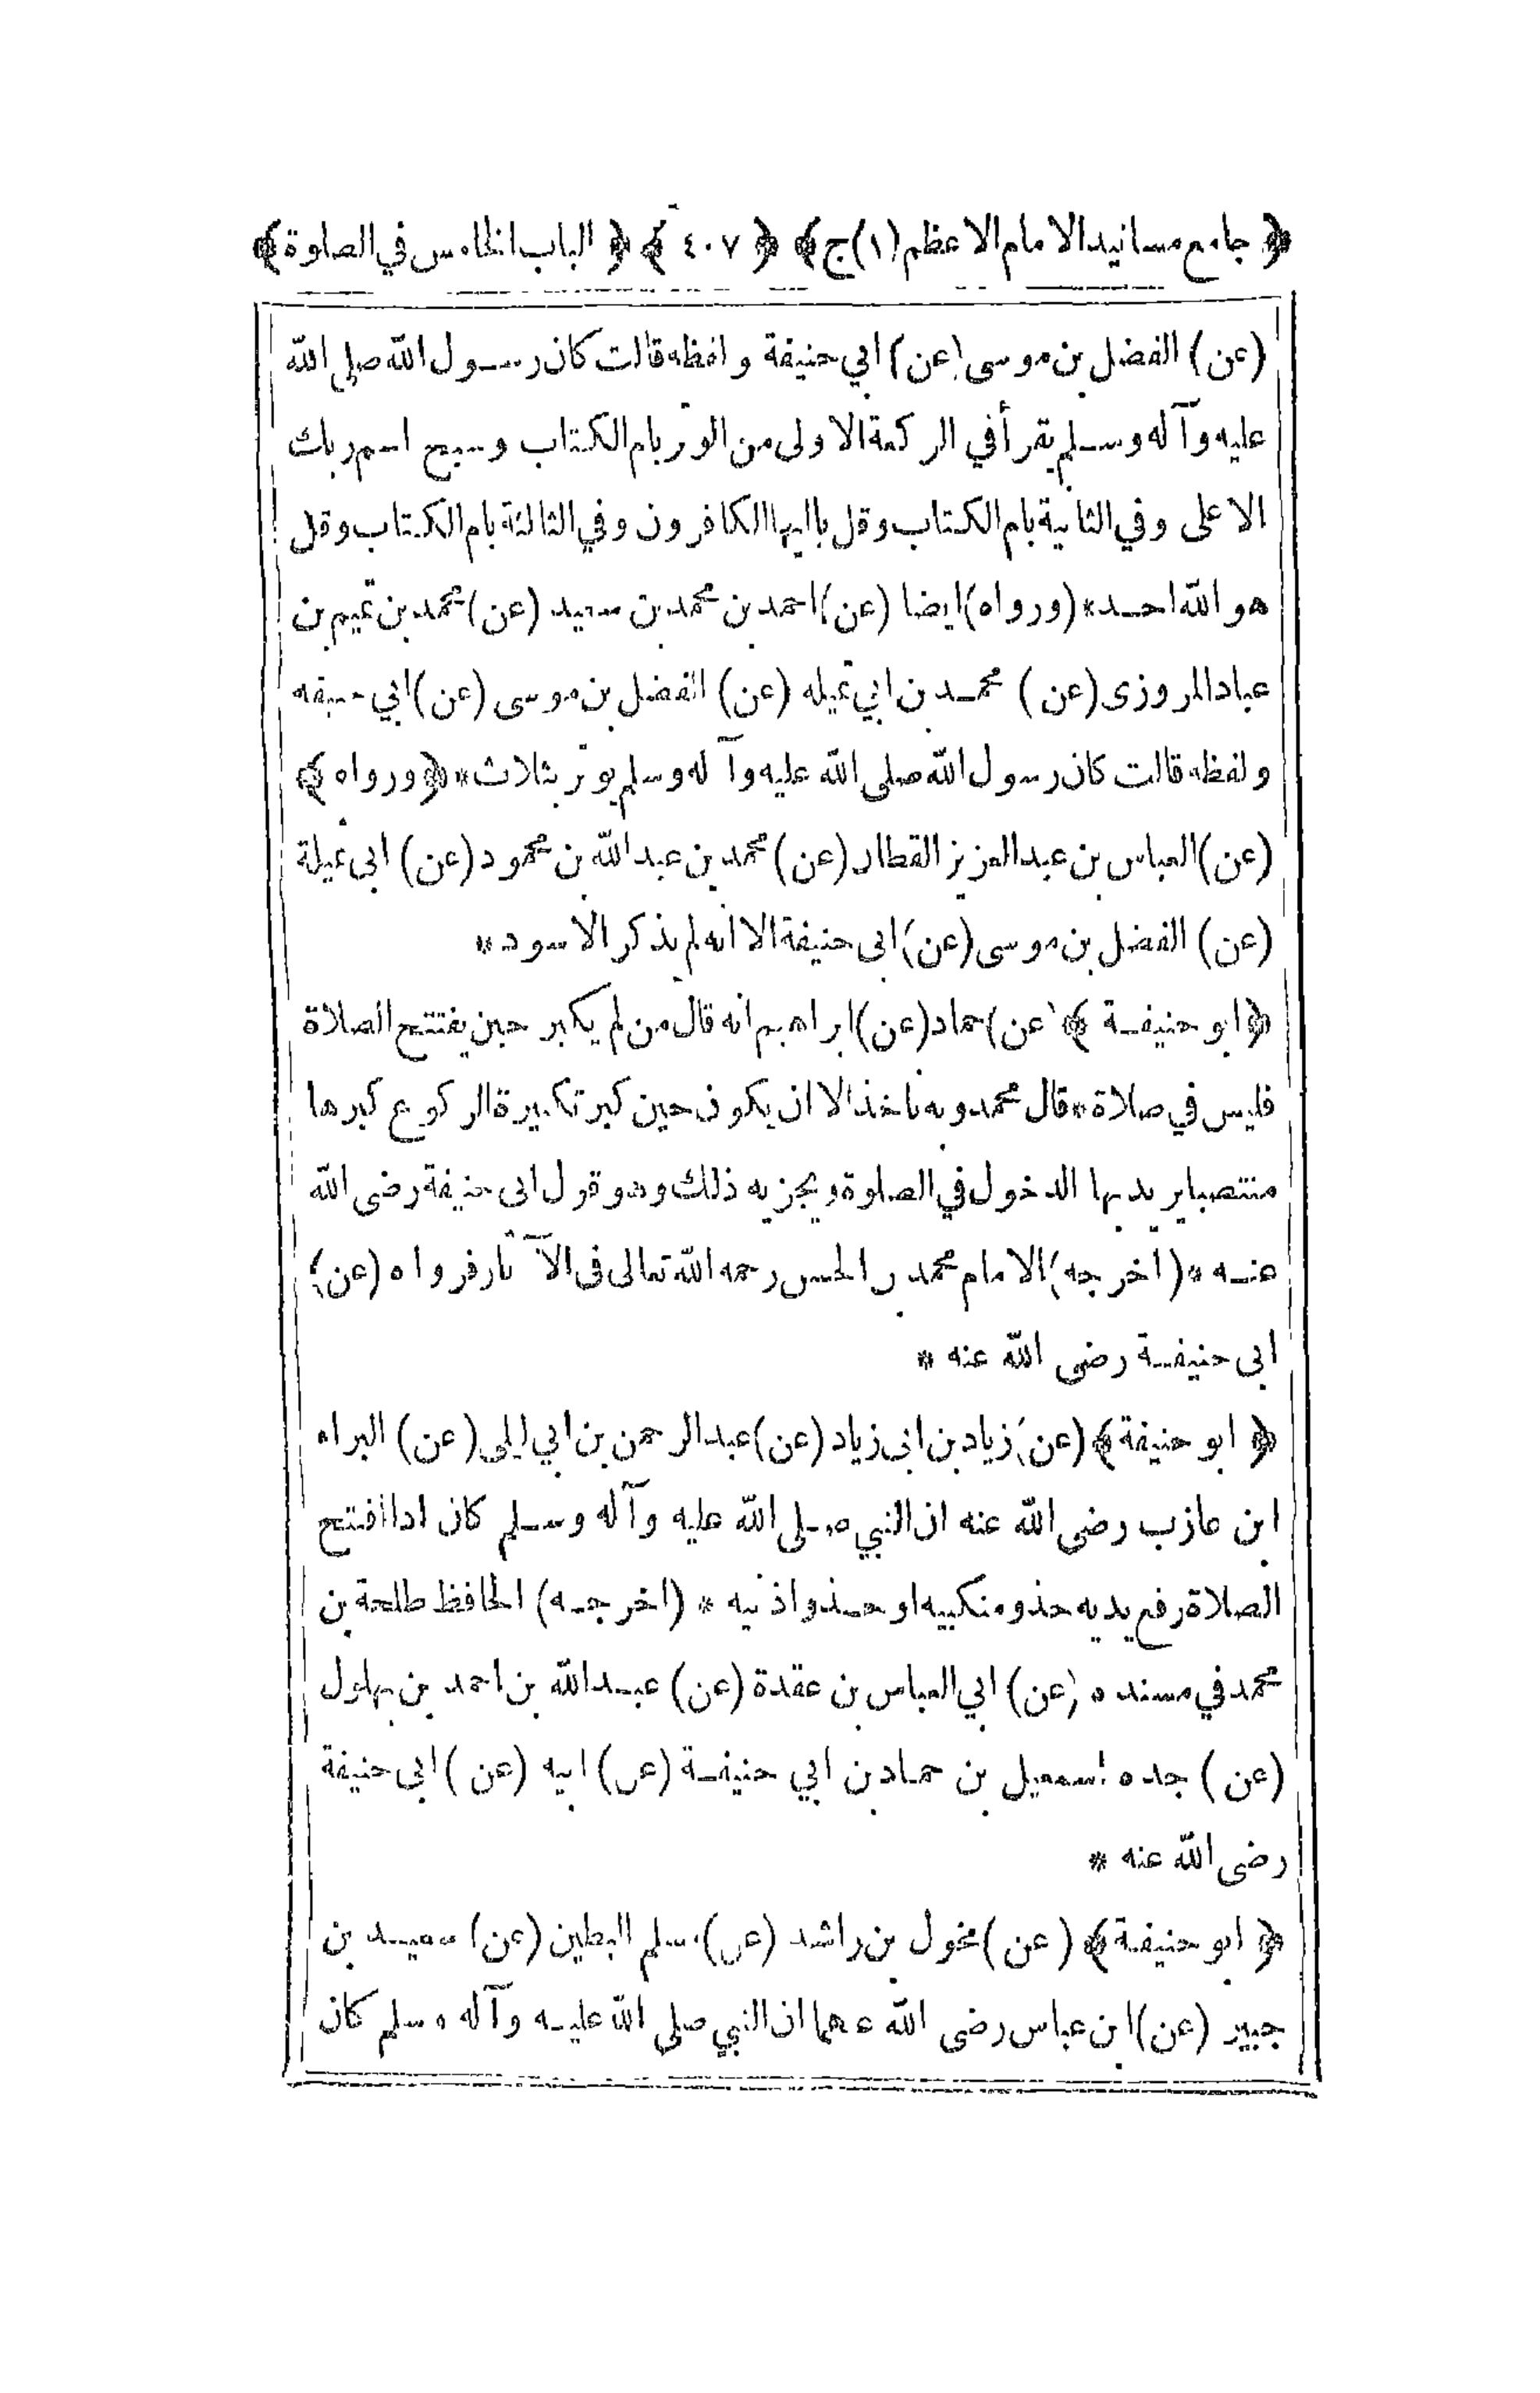 ﴿ جامع مسانيد الامام الاعظم (١) ج ﴾ ﴿ ٤٠٧ ﴾ ﴿ الباب الخامس في الصلوة ﴾
(عن) الفضل بن موسى (عن) ابي حنيفة ولفظه قالت كان رسول الله صلى الله
عليه وآله وسلم يقرأ في الركعة الاولى من الوتر بام الكتاب وسبح اسم ربك
الاعلى وفي الثانية بام الكتاب وقل ياايها الكافرون وفي الثالثة بام الكتاب وقل
هو الله احد * (ورواه) ايضا (عن) احمد بن محمد بن سعيد (عن) محمد بن تميم بن
عباد المروزى (عن) محمد بن ابي تميله (عن) الفضل بن موسى (عن) ابي حنيفه
ولفظه قالت كان رسول الله صلى الله عليه وآله وسلم يوتر بثلاث * ﴿ ورواه ﴾
(عن) العباس بن عبد العزيز القطان (عن) محمد بن عبد الله بن محمود (عن) ابى عيلة
(عن) الفضل بن موسى (عن) ابى حنيفة الا انه لم يذكر الاسود *
﴿ ابو حنيفة ﴾ (عن) حماد (عن) ابراهيم انه قال من لم يكبر حين يفتتح الصلاة
فليس في صلاة * قال محمد وبه ناخذ الا ان يكون حين كبر تكبيرة الركوع كبرها
منتصبا يريد بها الدخول في الصلوة ويجزيه ذلك وهو قول ابى حنيفة رضى الله
عنه * (اخرجه) الامام محمد بن الحسن رحمه الله تعالى فى الآثار فرواه (عن)
ابى حنيفة رضى الله عنه *
﴿ ابو حنيفة ﴾ (عن) زياد بن ابى زياد (عن) عبد الرحمن بن ابي ليلى (عن) البراء
ابن عازب رضى الله عنه ان النبي صلى الله عليه وآله وسلم كان اذا افتتح
الصلاة رفع يديه حذو منكبيه او حذو اذنيه * (اخرجه) الحافظ طلحة بن
محمد في مسنده (عن) ابي العباس بن عقدة (عن) عبد الله بن احمد بن بهلول
(عن) جده اسمعيل بن حماد بن ابي حنيفة (عن) ابيه (عن) ابى حنيفة
رضى الله عنه *
﴿ ابو حنيفة ﴾ (عن) مخول بن راشد (عن) مسلم البطين (عن) سعيد بن
جبير (عن) ابن عباس رضى الله عنهما ان النبي صلى الله عليه وآله وسلم كان